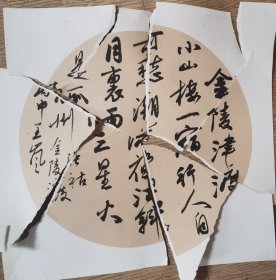 金陵津渡
小山楼一宿行人自
可愁潮落夜江斜
月裏两三星火
是瓜州 张祜
金陵津渡
丙申王